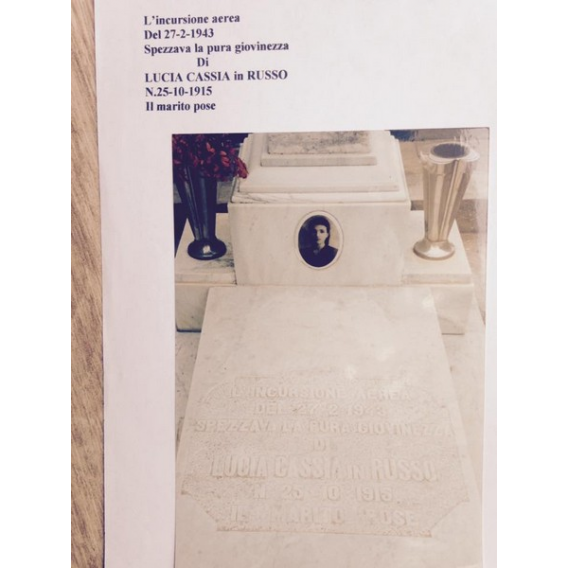 L'incursione aerea
Del 27-2-1943
Spezzava la pura giovinezza
Di
LUCIA CASSIA in RUSSO
N.25-10-1915
Il marito pose
L'INCURSIONE AEREA
DEL 27-2-1943
SPEZZAVA LA PURA GIOVINEZZA
DI
LUCIA CASSIA IN RUSSO
N. 25-10-1915
IL MARITO POSE